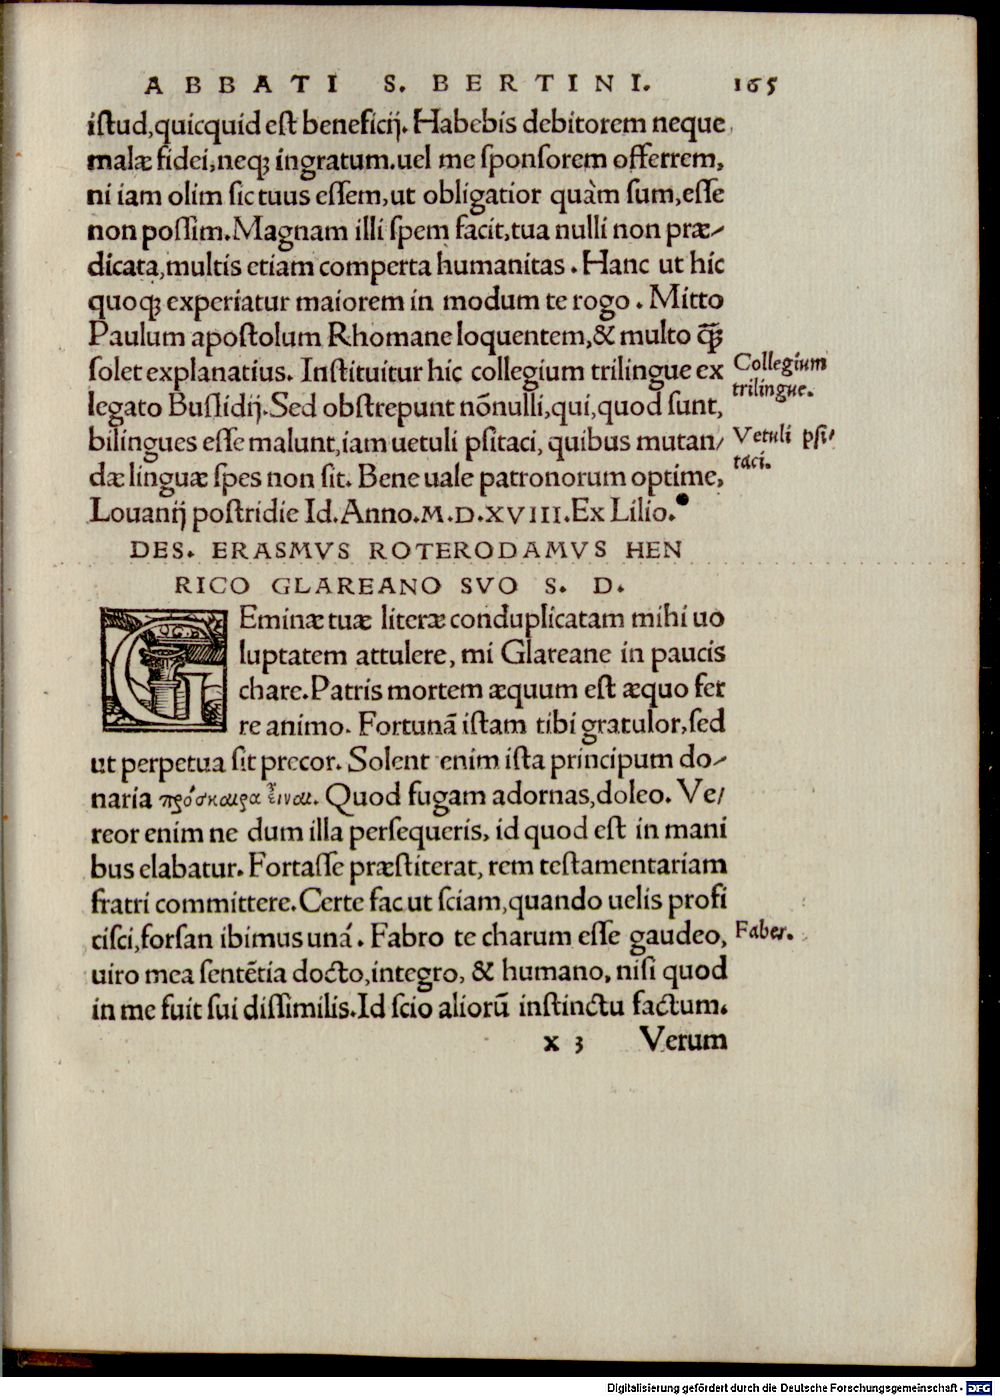 ABBATI S. BERTINI. 165
istud,quicquid est beneficij. Habebis debitorem neque
malæ fidei,neqꝫ ingratum.uel me sponsorem offerrem,
ni iam olim sic tuus essem,ut obligatior quàm sum,esse
non possim.Magnam illi spem facit,tua nulli non præ-
dicata,multis etiam comperta humanitas. Hanc ut hic
quoqꝫ experiatur maiorem in modum te rogo. Mitto
Paulum apostolum Rhomane loquentem,& multo q̃ꝫ
solet explanatius. Instituitur hic collegium trilingue ex
Collegium
trilingue.
legato Buslidij.Sed obstrepunt nõnulli,qui,quod sunt,
bilingues esse malunt,iam uetuli psitaci, quibus mutan/
Vetuli psi/
taci.
dæ linguæ spes non sit. Bene uale patronorum optime,
Louanij postridie Id.Anno.M.D.XVIII.Ex Lilio.
DES. ERASMVS ROTERODAMVS HEN
RICO GLAREANO SVO S. D.
GEminæ tuæ literæ conduplicatam mihi uo
luptatem attulere, mi Glareane in paucis
chare.Patris mortem æquum est æquo fer
re animo. Fortunã istam tibi gratulor,sed
ut perpetua sit precor. Solent enim ista principum do-
naria πρόσκαιρα εἶναι. Quod fugam adornas,doleo. Ve/
reor enim ne dum illa persequeris, id quod est in mani
bus elabatur. Fortasse præstiterat, rem testamentariam
fratri committere.Certe fac ut sciam,quando uelis profi
cisci,forsan ibimus uná. Fabro te charum esse gaudeo,
Faber.
uiro mea sentẽtia docto,integro, & humano, nisi quod
in me fuit sui dissimilis.Id scio aliorũ instinctu factum.
x 3 Verum
Digitalisierung gefördert durch die Deutsche Forschungsgemeinschaft - DFG